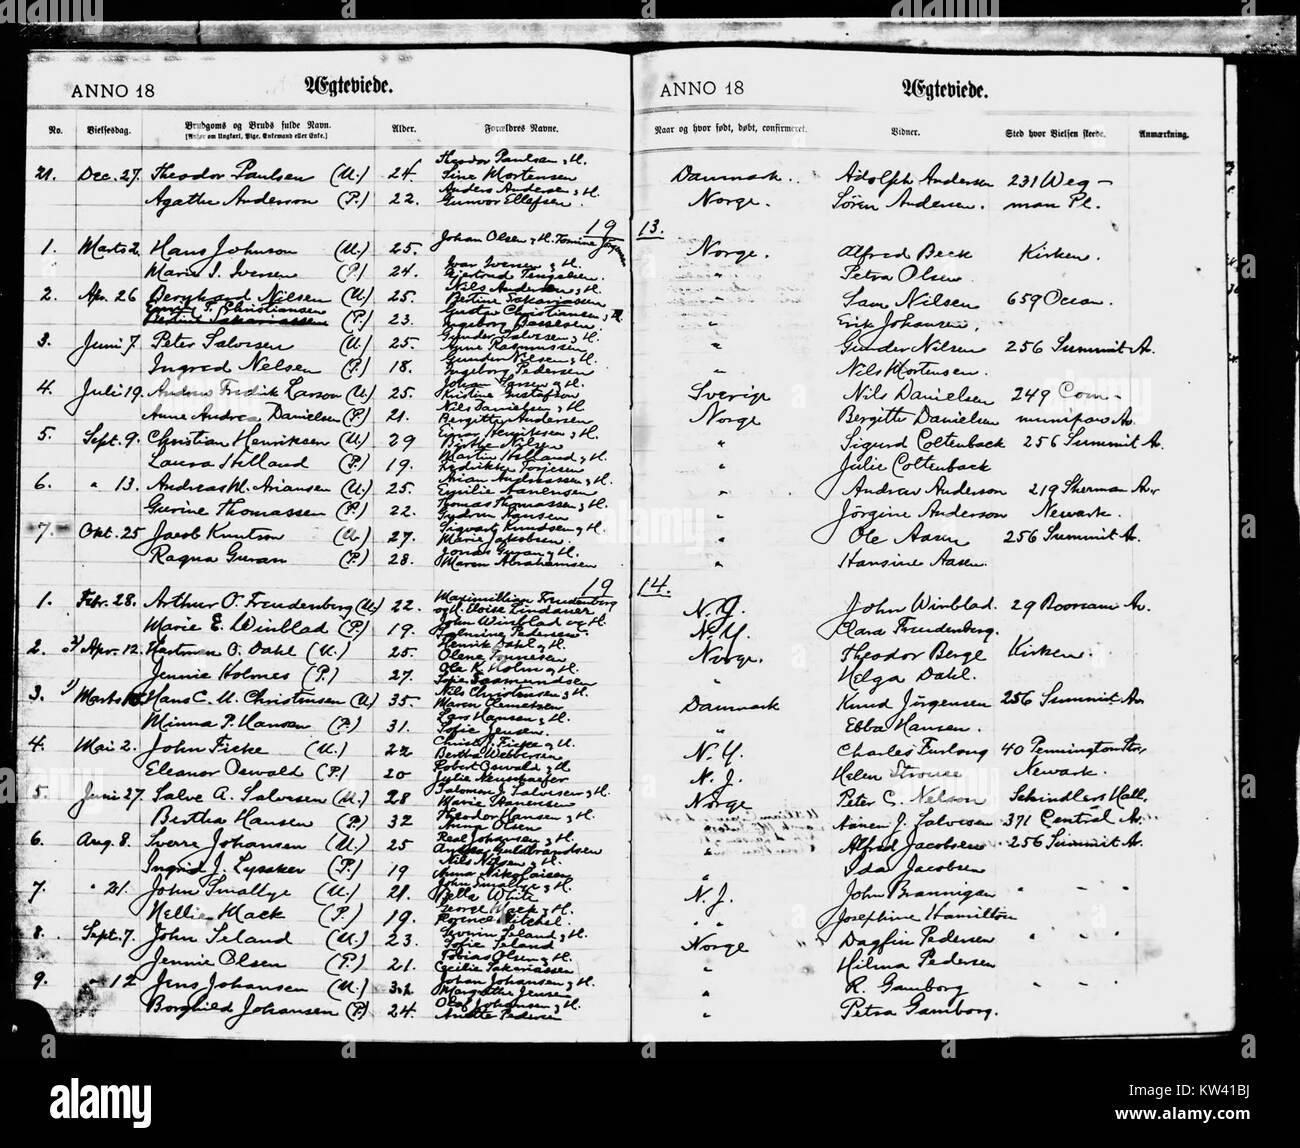 ANNO 18 Ægteviede.
No. Vielsesdag. Brudgoms og Bruds fulde Navn. Alder. Forældres Navne.
[Anfør om Ungkarl, Pige, Enkemand eller Enke.]
Theodor Paulsen & H.
21. Dec. 27. Theodor Paulsen (U.) 24. Sine Mortensen
Anders Andersen & H.
Agathe Anderson (P.) 22. Gunvor Ellefsen.
19
Johan Olsen & H. Tomine
1. Marts 2. Hans Johnson (U.) 25.
Ivar Iversen & H.
Marie I. Iversen (P.) 24. Gjertrud
Nils Andersen & H.
2. Apr. 26 Nilsen (U.) 25. Bertine Sakariassen
T. Christiansen Gustav Christiansen & H.
Bertine Sakariassen (P.) 23. Ingeborg
Gunder Salvesen & H.
3. Juni 7. Peter Salvesen (U.) 25. Anne Rasmussen
Gunder Nilsen & H.
Ingred Nelsen (P.) 18. Ingeborg Pedersen
Johan Larsen & H.
4. Juli 19. Andrew Fredrik Larson (U.) 25. Kristine Gustafson
Nils Danielsen & H.
Anne Andrea Danielsen (P.) 21. Bergitte Andersen
Henriksen & H.
5. Sept. 9. Christian Henriksen (U.) 29 Nilsen
Martin Hilland & H.
Laura Hilland (P.) 19. Fredrikke Torjesen
Arian Andreassen & H.
6. " 13. Andreas M. Ariansen (U.) 25. Emilie Aanensen
Tomas Thomassen & H.
Gurine Thomassen (P.) 22. Hansen
Sigvart Knudsen & H.
7. Okt. 25 Jacob Knutson (U.) 27. Marie Jakobsen
Jonas Guran & H.
Ragna Guran (P.) 28. Maren Abrahamsen
19
Maximillian Freudenberg
1. Febr. 28. Arthur O. Freudenberg (U.) 22. og H. Eloise Lindauer
John Winblad og H.
Marie E. Winblad (P.) 19. Pedersen
Henrik Dahl & H.
2. 2) Apr. 12. Hartman O. Dahl (U.) 25. Olene Tonnesen
Ole K. Holm & H.
Jennie Holmes (P.) 27. Sofie Rasmundsen
Nils Christensen & H.
3. 1) Marts Hans C. U. Christensen (U) 35. Maren Clemetsen
Lars Hansen & H.
Minna P. Hansen (P.) 31. Sofie Jensen.
Christ. J. Ficke & H.
4. Mai 2. John Ficke (U.) 22 Bertha
Robert Oswald & H.
Eleanor Oswald (P.) 20 Julie
Salomon J. Salvesen & H.
5. Juni 27. Salve A. Salvesen (U.) 28 Marie Aanensen
Theodor Hansen & H.
Bertha Hansen (P.) 32 Anna Olsen
Johansen & H.
6. Aug. 8. Sverre Johansen (U.) 25 Guldbrandsen
Nils Nilsen & H.
Ingrid J. Lysaker (P.) 19 Anna Nikolaisen
John Smallye & H.
7. " 21. John Smallye (U.) 21. Bella White
George Mack & H.
Nellie Mack (P.) 19. Florence Mitchel.
Severin Seland & H.
8. Sept. 7. John Seland (U.) 23. Sofie Seland
Tobias Olsen & H.
Jennie Olsen (P.) 21. Cecilie Sakariassen
Johan Johansen & H.
9. " 12 Jens Johansen (U.) 32 Margrethe Jensen
Olaf Johansen & H.
Borghild Johansen (P.) 24. Anette Pedersen
ANNO 18 Ægteviede.
Naar og hvor født, døbt, confirmeret. Vidner. Sted hvor Vielsen skede. Anmærkning.
Danmark. Adolph Andersen 231 Weg-
Norge. Søren Andersen. man Pl.
13.
Norge. Alfred Beck Kirken.
" Petra Olsen
" Sam Nilsen 659 Ocean.
" Erik Johansen.
" Gunder Nilsen 256 Summit A.
" Nils Mortensen.
Sverige Nils Danielsen 249 Com-
Norge Bergitte Danielsen munipaw Av.
" Sigurd Coltenback 256 Summit Av.
" Julie Coltenback
" Andrew Anderson 219 Sherman Av.
" Jörgine Anderson Newark.
" Ole Aasen 256 Summit Av.
" Hansine Aasen.
14.
N. J. John Winblad. 29 Av.
N. Y. Clara Freudenberg.
Norge. Theodor Berge Kirken.
" Helga Dahl.
Danmark Knud Jörgensen 256 Summit Av.
" Ebba Hansen.
N. Y. Charles Furlong 40 Pennington Str.
N. J. Helen Strouse Newark.
Norge Peter C. Nelson Schindlers Hall,
J. Salvesen 371 Central Av.
" Alfred Jacobsen 256 Summit Av.
" Ida Jacobsen
N. J. John Brannigan " " "
" " Josephine Hamilton
Norge Dagfin Pedersen " " "
" Hilma Pedersen
" R. Gamborg " " "
" Petra Gamborg.
alamy
alamy
Image ID: KW41BJ
www.alamy.com